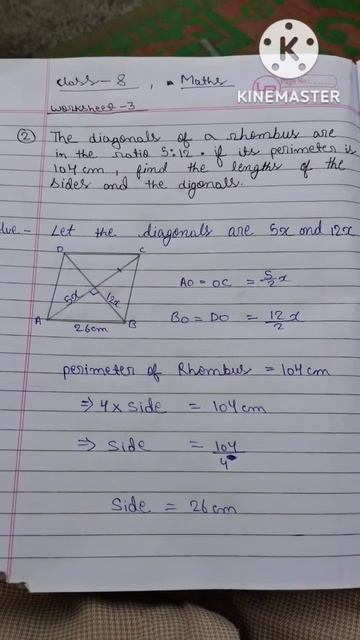 KINEMASTER
class - 8, Maths
worksheet - 3
② The diagonals of a rhombus are
in the ratio 5:12. if its perimeter is
104 cm, find the lengths of the
sides and the digonals.
Let the diagonals are 5x and 12x
D C
5x 12x
A B
26cm
AO = OC = 5/2 x
BO = DO = 12/2 x
perimeter of Rhombus = 104 cm
⇒ 4 x side = 104 cm
⇒ side = 104/4
Side = 26 cm